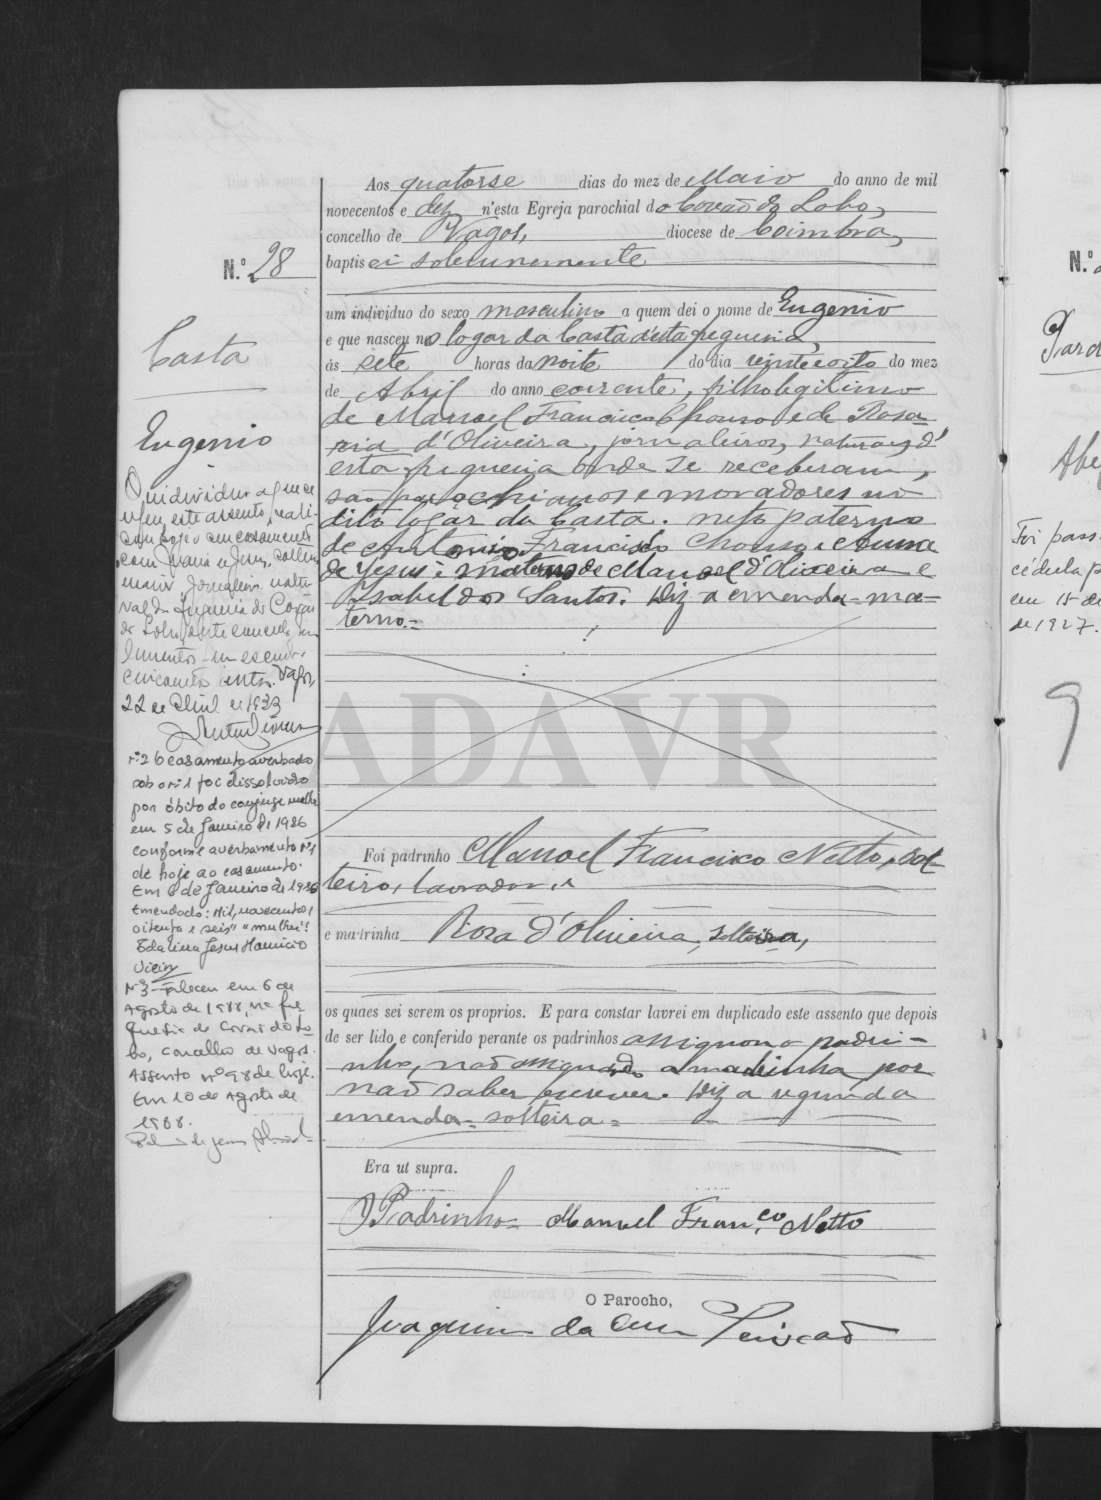 N.º 28
Casta
Eugenio
O individuo a quem se
refere este assento, reali-
sou hoje o seu casamento
com Maria de Jesus, solteira
maior, jornaleira, natu-
ral da freguesia do Covão
do Lobo, deste concelho
22 de Abril de 1933
Nº 2 O casamento averbado
sob o nº 1 foi dissolvido
por óbito do conjuge mulher
em 5 de Janeiro de 1986
conforme averbamento nº 1
de hoje ao casamento.
Em 6 de Janeiro de 1986
Emendado: Mil, novecentos e
oitenta e seis" "mulher"!
Jesus Mauricio
Vieira
Nº 3 - Faleceu em 6 de
Agosto de 1988, na fre
guesia de Covão do Lo-
bo, concelho de Vagos.
Assento nº 98 de hoje.
Em 10 de Agosto de
1988.
Aos quatorse dias do mez de Maio do anno de mil
novecentos e dez n'esta Egreja parochial do Covão do Lobo,
concelho de Vagos, diocese de Coimbra,
baptisei solemnemente
um individuo do sexo masculino a quem dei o nome de Eugenio
e que nasceu no logar da Casta d'esta freguesia,
ás sete horas da noite do dia vinte e oito do mez
de Abril do anno corrente, filho legitimo
de Manoel Francisco Chouso e de Rosa-
ria d'Oliveira, jornaleiros, naturaes d'
esta freguesia onde se receberam,
são parochianos e moradores no
dito logar da Casta. neto paterno
de Antonio Francisco Chouso e Anna
de Jesus e materno de Manoel d'Oliveira e
Isabel dos Santos. Diz a emenda = ma=
terno.=
ADAVR
Foi padrinho Manoel Francisco Netto, sol-
teiro, lavrador,
e madrinha Rosa d'Oliveira, solteira,
os quaes sei serem os proprios. E para constar lavrei em duplicado este assento que depois
de ser lido e conferido perante os padrinhos assignou o padri-
nho, não assignando a madrinha por
não saber escrever. Diz a segunda
emenda = solteira =
Era ut supra.
O Padrinho = Manuel Fran.co Netto
O Parocho,
Joaquim da
N.º
Foi pass
cedula p
em 15 de
de 1927.
9